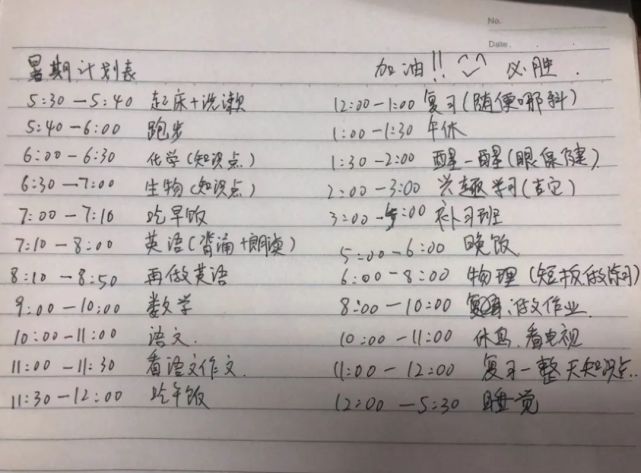 No.
Date.
暑期计划表
加油!! 必胜.
5:30—5:40 起床+洗漱
5:40—6:00 跑步
6:00—6:30 化学(知识点)
6:30—7:00 生物(知识点)
7:00—7:10 吃早饭
7:10—8:00 英语(背诵+朗读)
8:10—8:50 再做英语
9:00—10:00 数学
10:00—11:00 语文.
11:00—11:30 看语文作文.
11:30—12:00 吃午饭
12:00—1:00 复习(随便哪科)
1:00—1:30 午休
1:30—2:00 醒一醒(眼保健)
2:00—3:00 兴趣学习(吉它)
3:00—5:00 补习班
5:00—6:00 晚饭
6:00—8:00 物理(短板做练习)
8:00—10:00 做作业
10:00—11:00 休息.看电视
11:00—12:00 复习一整天知识点..
12:00—5:30 睡觉